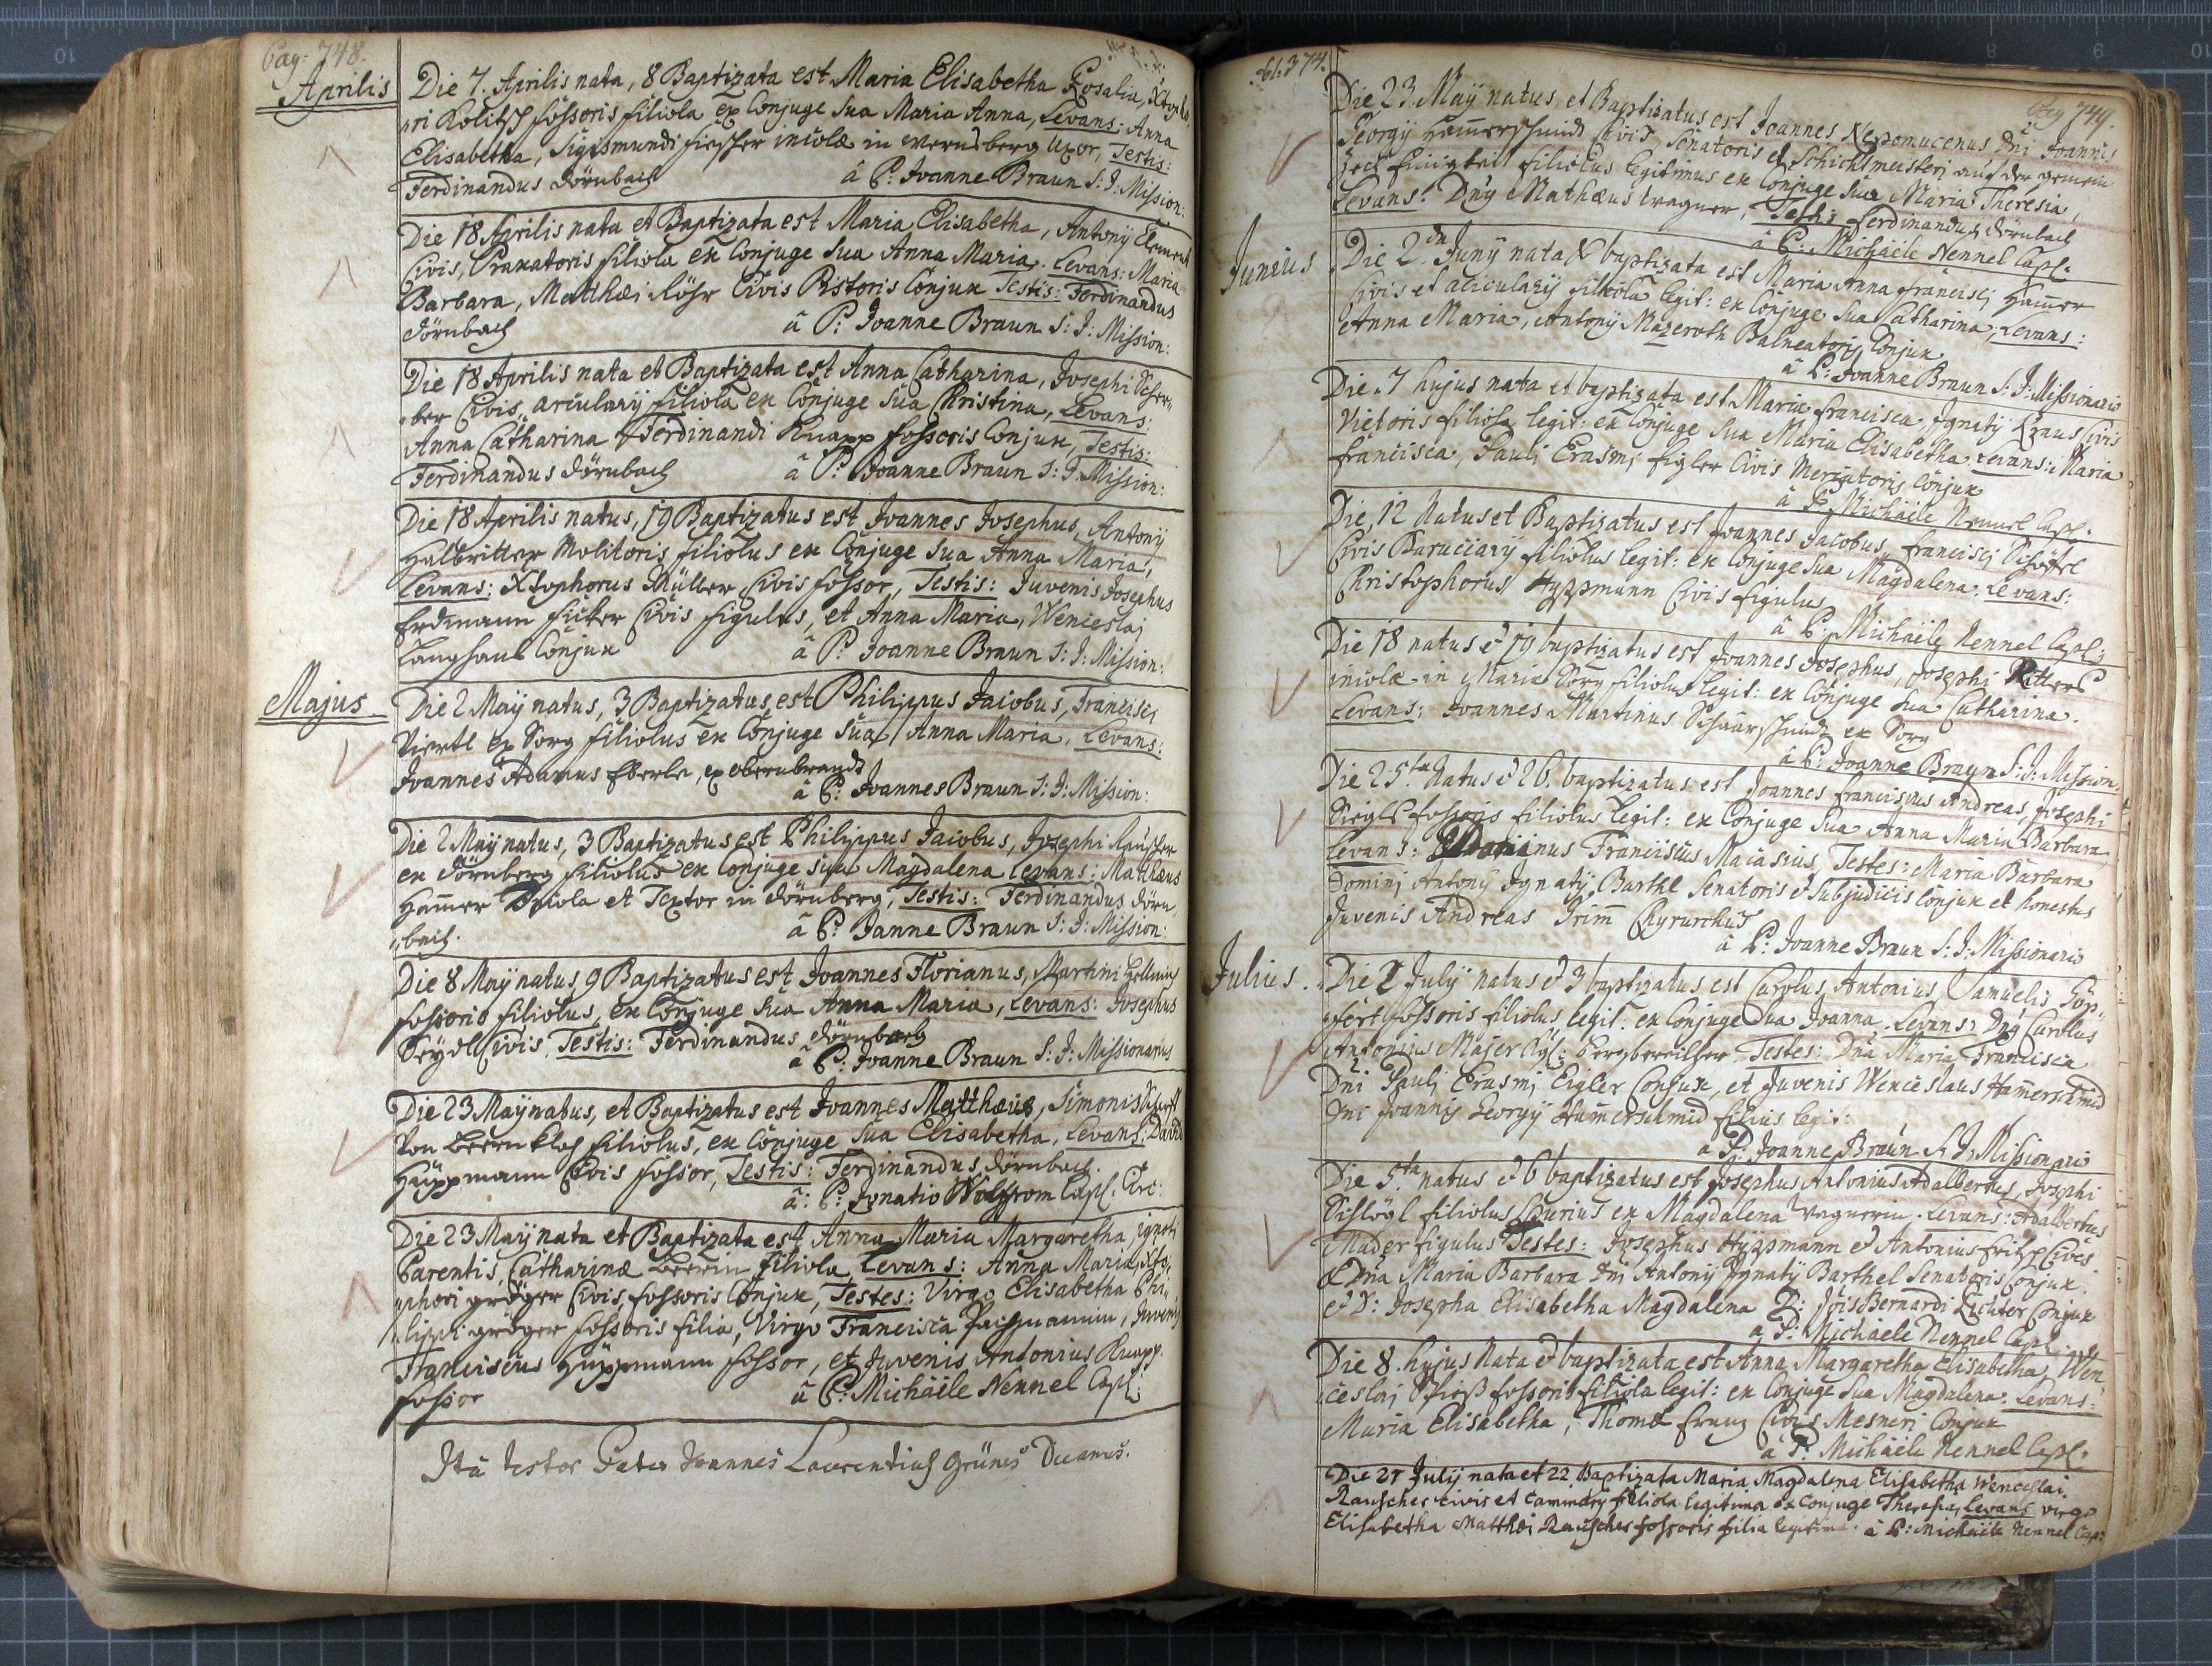 Pag: 748.
Aprilis
Die 7. Aprilis nata, 8 Baptizata est Maria Elisabetha Rosalia, Xtopho
pri Kolitsch fossoris filiola ex Conjuge Sua Maria Anna, Levans: Anna
Elisabetha, Sigismundi fischer incolæ in Wernsberg Uxor, Testis:
Ferdinandus Dörnbach â P: Joanne Braun S: J: Mission:
Die 18 Aprilis nata et Baptizata est Maria Elisabetha, Antonij
Civis, filiola ex Conjuge Sua Anna Maria. Levans: Maria
Barbara, Matthæi Röhr Civis Pistoris Conjux Testis: Ferdinandus
Dörnbach â P: Joanne Braun S: J: Mission:
Die 18 Aprilis nata et Baptizata est Anna Catharina, Josephi Schrei„
„ber Civis, arculary filiola ex Conjuge Sua Christina, Levans:
Anna Catharina Ferdinandi Knapp fossoris Conjux, Testis:
Ferdinandus Dörnbach â P: Joanne Braun S: J: Mission:
Die 18 Aprilis natus, 19 Baptizatus est Joannes Josephus, Antonij
Halbritter Molitoris filiolus ex Conjuge Sua Anna Maria,
Levans: Xtophorus Müller Civis fossor, Testis: Juvenis Josephus
Erdmann Civis figulus, et Anna Maria, Wenceslaj
Langhans Conjux â P: Joanne Braun S: J: Mission:
Majus
Die 2 Maij natus, 3 Baptizatus est Philippus Jacobus, Francisci
Viertl ex Sorg filiolus ex Conjuge Sua Anna Maria, Levans:
Joannes Adamus Eberle, ex obernbrandt
â P: Joannes Braun S: J: Mission:
Die 2 Maij natus, 3 Baptizatus est Philippus Jacobus, Josephi Rauscher
ex Dörnberg filiolus ex Conjuge Sua Magdalena Levans: Matthæus
Hamer Incola et Textor in Dörnberg, Testis: Ferdinandus Dörn„
„bach. â P: Janne Braun S: J: Mission:
Die 8 Maij natus, 9 Baptizatus est Joannes Florianus, Martini
fossoris filiolus, ex Conjuge Sua Anna Maria, Levans: Josephus
Seydl Civis Testis: Ferdinandus Dörnbach
â P: Joanne Braun S: J: Missionarius
Die 23 Maij natus, et Baptizatus est Joannes Matthæus, Simonis
Von filiolus, ex Conjuge Sua Elisabetha, Levans: David
Hüppmann Civis fossor, Testis: Ferdinandus Dörnbach.
â: P: Ignatio Wolfrom Capl:
Die 23 Maij nata et Baptizata est Anna Maria Margaretha, ignoti
Parentis, Catharinæ filiola, Levans: Anna Maria, Xto„
„phori gröger Civis, fossoris Conjux, Testes: Virgo Elisabetha Phi„
„lippi gröger fossoris filia, Virgo Francisca, Juvenis
Franciscus Hüppmann fossor, et Juvenis Antonius Knapp.
fossor â P: Michäele Nennel Capl:
Ita testor Pater Joannes Laurentius Grünes Decanus.
bl: 374.
Pag 749.
Die 23. Maij natus, et Baptizatus est Joannes Nepomucenus Dñi Joannis
Georgij Hamerschmidt Civis, Senatoris et Schichtmeisteri auf der gemein
Zech filiolus legitimus ex Conjuge Sua Maria Theresia,
Levans: Dñg Mathæus Wagner, Testis: Ferdinandus Dörnbach
â P: Michäele Nennel Capl:
Junius
Die 2da Junij nata & baptizata est Maria Anna francisci Hamer
Civis et acicularij filiola legit: ex Conjuge Sua Catharina; Levans:
Anna Maria, Antonij Mazeroth Balneatoris Conjux
â P: Joanne Braun S: J: Missionario
Die 7 hujus nata et baptizata est Maria francisca, Ignatij Kraus Civis
Vietoris filiola legit: ex Conjuge Sua Maria Elisabetha. Levans: Maria
francisca, Pauli Erasmi figler Civis Mercatoris Conjux
â P: Michäele Nennel Capl:
Die 12 Natus et Baptizatus est Joannes Jacobus, francisci
Civis filiolus legit: ex Conjuge Sua Magdalena. Levans:
Christophorus Hyppmann Civis figulus
â P: Michäele Nennel Capl:
Die 18 natus & 19 baptizatus est Joannes Josephus, Josephi Ritter
incolæ in Maria Sorg filiolus legit: ex Conjuge Sua Catharina.
Levans: Joannes Martinus ex Sorg
â P: Joanne Braun S: J: Mission:
Die 25ta Natus & 26. baptizatus est Joannes franciscus Andreas, Josephi
fossoris filiolus legit: ex Conjuge Sua Anna Maria Barbara
Levans: Franciscus Macasius, Testes: Maria Barbara
Domini Antonij Ignatij Barthl Senatoris & Subjudicis Conjux et honestus
Juvenis Andreas Primm Chyrurchus
â P: Joanne Braun S: J: Missionario
Julius.
Die 2 Julij natus & 3 baptizatus est Carolus, Antonius Samuelis Göp„
„fert fossoris filiolus legit: ex Conjuge Sua Joanna. Levans: Dñg Carolus
Antonius Majer Testes: Dña Maria Francisca
Dñi Pauli Erasmi Eigler Conjux, et Juvenis Wenceslaus Hamerschmid
Dni Joannis Georgij Hamerschmid filius legit:
a P: Joanne Braun S: J: Missionario
Die 5ta natus & 6 baptizatus est Josephus Antonius Adalbertus, Josephi
Schlögl filiolus Spurius ex Magdalena Wagnerin. Levans: Adalbertus
Mader figulus Testes: Josephus Hyppmann & Antonius Cives
& Dña Maria Barbara Dñi Antonij Ignatij Barthel Senatoris Conjux.
& D: Josepha Elisabetha Magdalena D: Jois Bernardi Lichter Conjux
a P: Michäele Nennel Capl:
Die 8. hujus Nata & baptizata est Anna Margaretha Elisabetha, Wen„
ceslaj fossoris filiola legit: ex Conjuge Sua Magdalena. Levans:
Maria Elisabetha, Thomæ Civis Conjux
â P: Michäele Nennel Capl:
Die 21 Julij nata et 22 Baptizata Maria Magdalena Elisabetha Wenceslai
Rauscher civis et filiola legitima ex Conjuge Theresia, Levans virgo
Elisabetha Matthæi Rauscher fossoris filia legitima. â P: Michäele Nennel Cap: